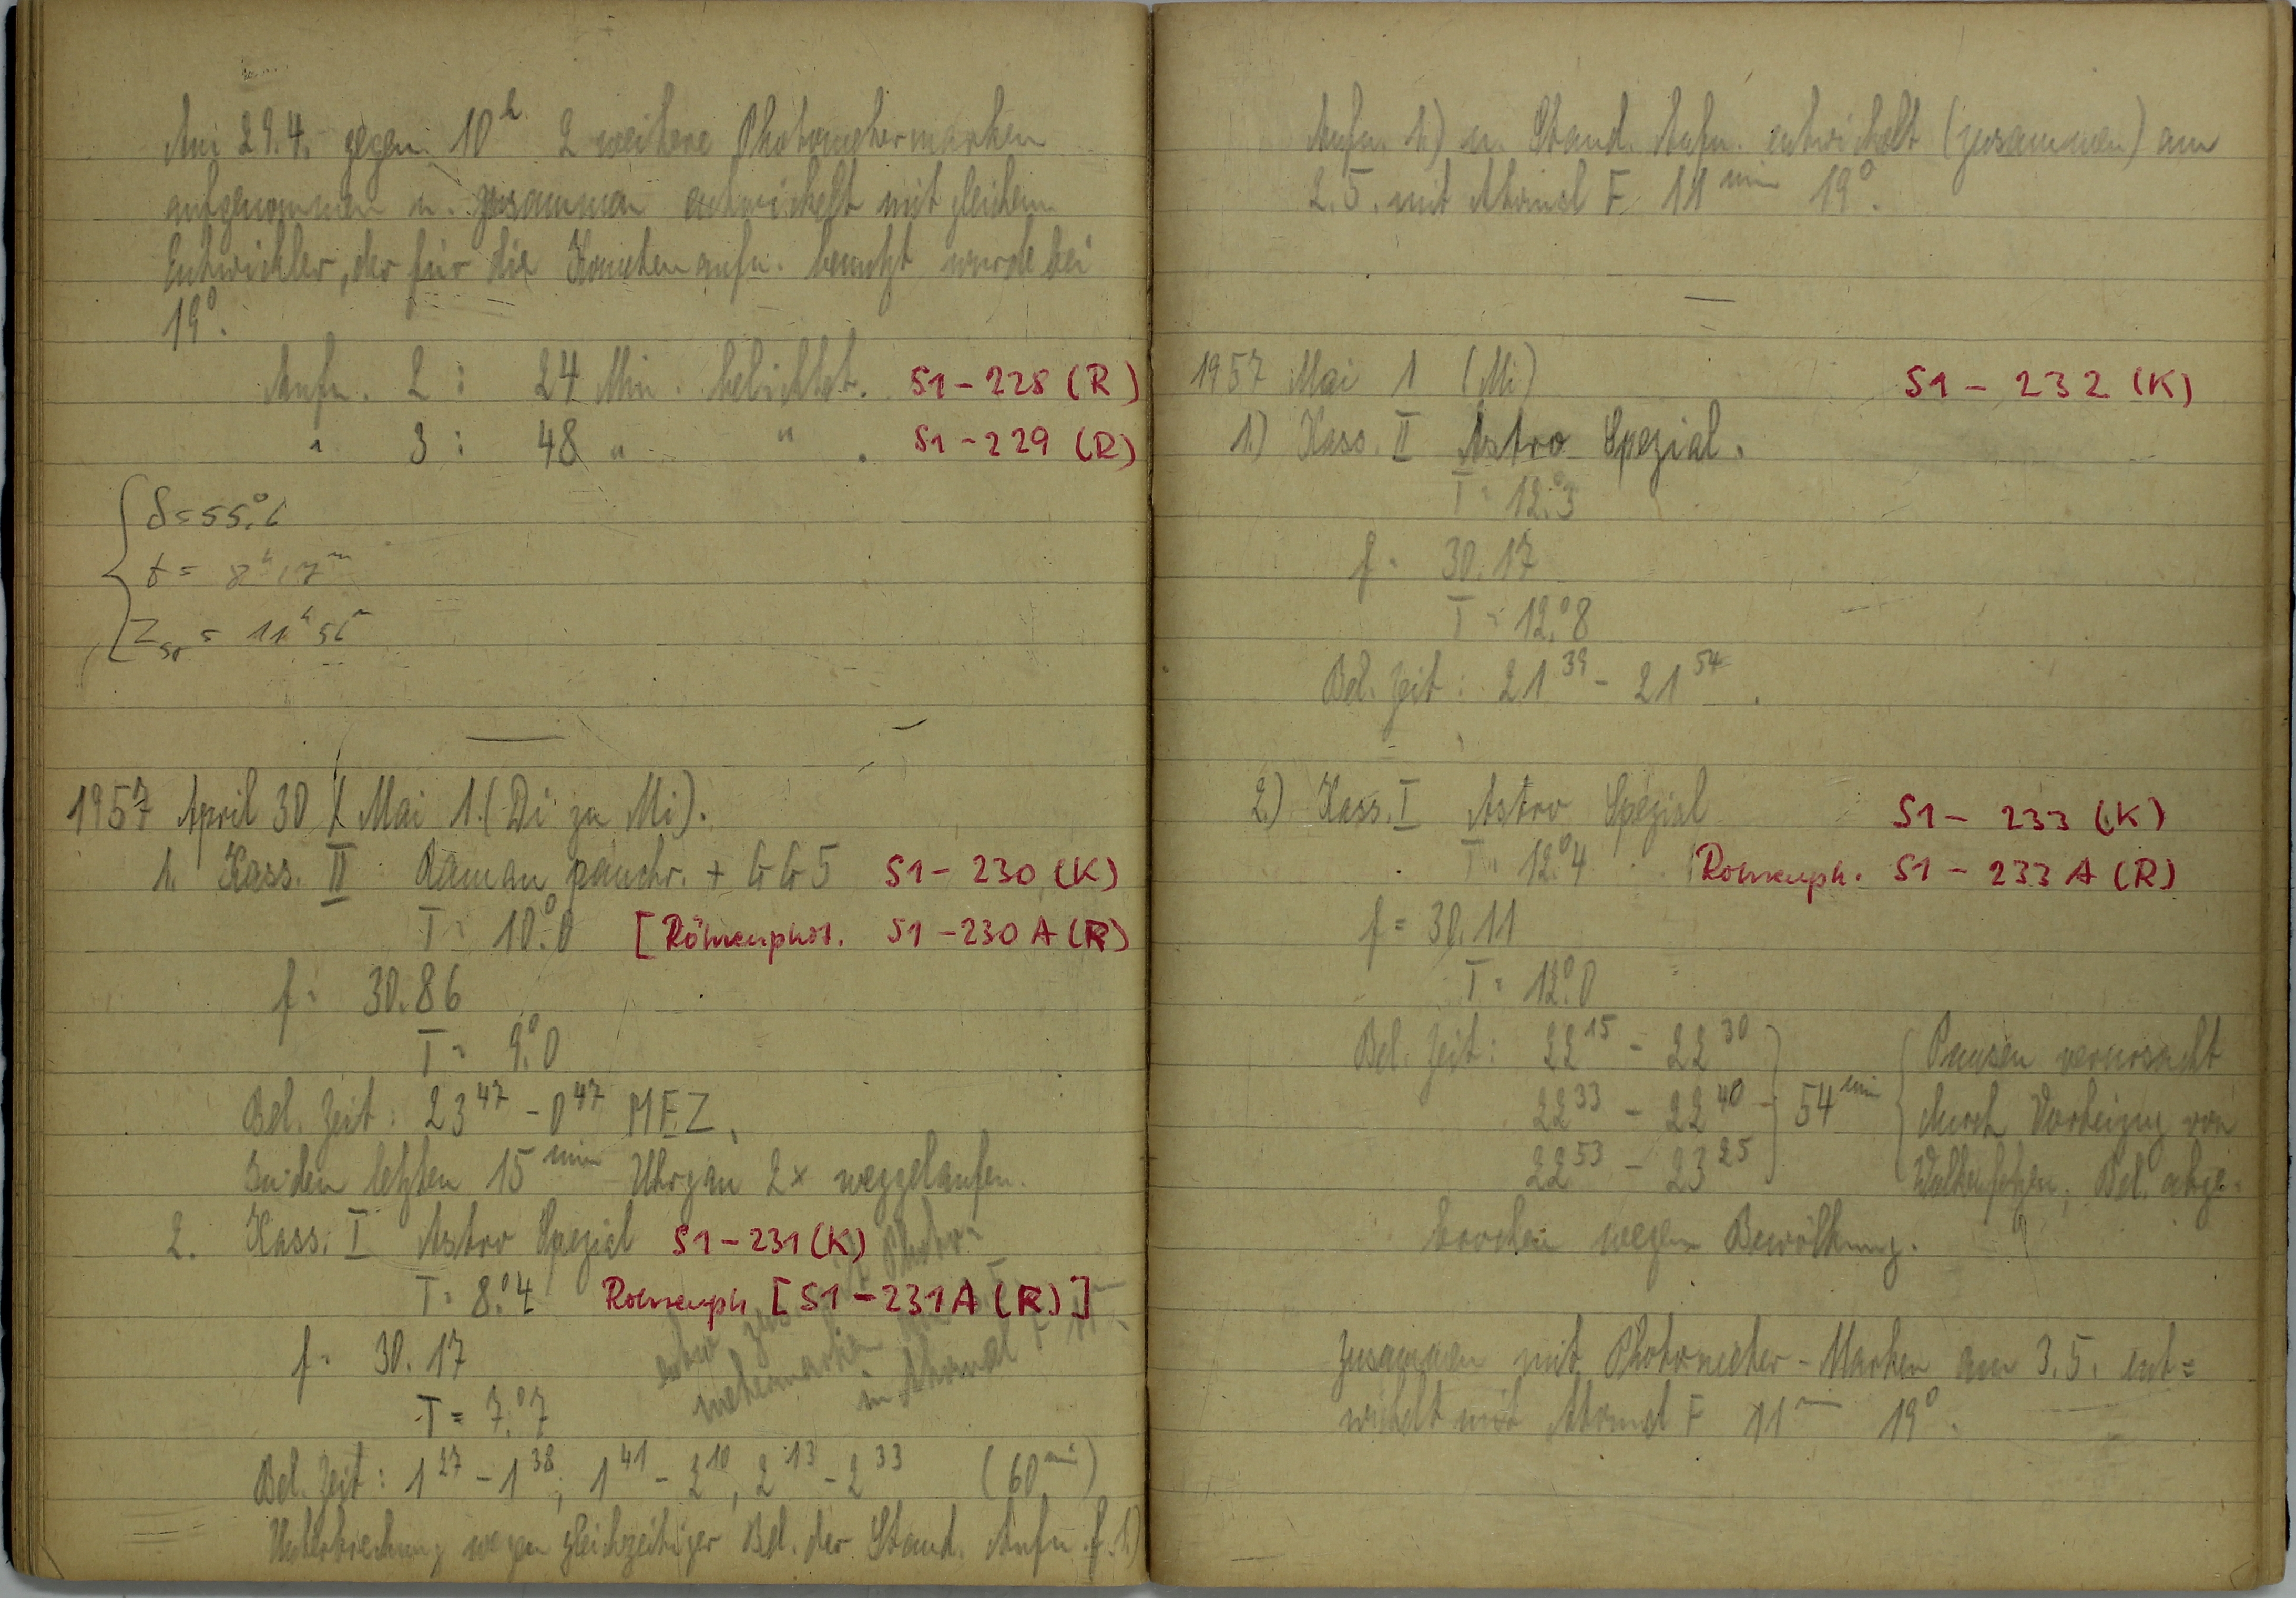 Am 29.4. gegen 10h 2 weitere Photometermarken
aufgenommen u. zusammen entwickelt mit gleichem
Entwickler, der für die Kometenaufn. benutzt wurde bei
19°.
Aufn. 2 : 24 Min. belichtet. S1-228 (R)
" 3 : 48 " " . S1-229 (R)
δ=55.°6
t = 8h 17m
1957 April 30 / Mai 1. (Di zu Mi).
1. Kass. II Raman panchr. + GG5 S1-230 (K)
T = 10.°0 [Röhrenphot. S1-230 A (R)
f = 30.86
T = 9.°0
Bel. Zeit: 23 47 - 0 47 MEZ.
In den letzten 15 min Uhrgan 2x weggelaufen.
2. Kass. I Astro Spezial S1-231 (K)
T = 8.°4 Röhrenph [S1-231A (R)]
entw. zus. Photo=
metermarken
in Atomal F 11m
f = 30.17
T = 7.°7
Bel. Zeit: 1 27 - 1 38, 1 41 - 2 10, 2 13 - 2 33 (60 min)
Unterbrechung wegen gleichzeitiger Bel. der Stand. Aufn. f. 1.)
Aufn. 1.) u. Stand. Aufn. entwickelt (zusammen) am
2.5. mit Atomal F 11 min 19°.
1957 Mai 1 (Mi) S1 - 232 (K)
1.) Kass. II Astro Spezial.
T = 12.°3
f = 30.17
T = 12.°8
Bel. Zeit: 21 39 - 21 54 .
2.) Kass. I Astro Spezial S1 - 233 (K)
T = 12.°4 Röhrenph. S1 - 233 A (R)
f = 30.11
T = 12.°0
Bel. Zeit: 22 15 - 22 30 Pausen verursacht
22 33 - 22 40 - 54 min durch Vorbeizug von
22 53 - 23 25 Wolkenfetzen; Bel. abge-
brochen wegen Bewölkung.
Zusammen mit Photometer-Marken am 3.5. ent=
wickelt mit Atomal F 11m 19°.